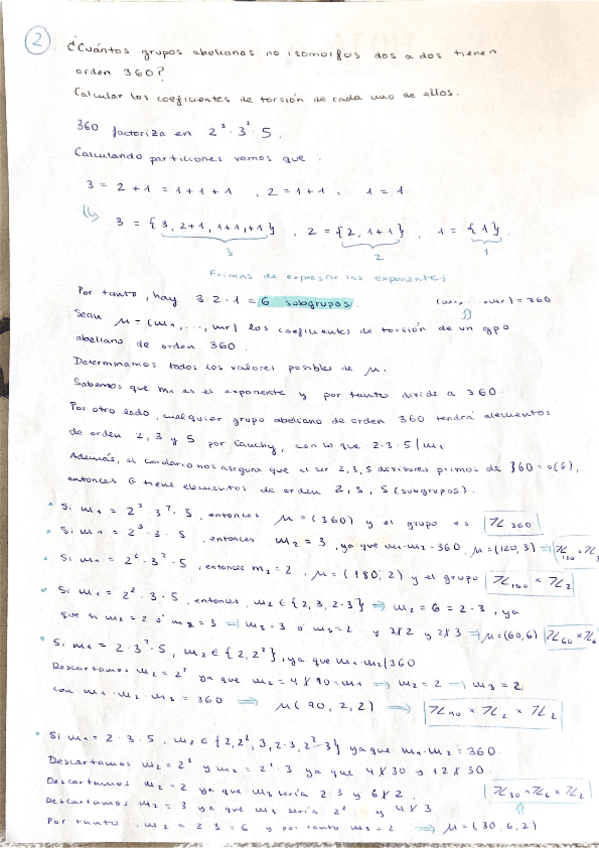 2
¿Cuántos grupos abelianos no isomorfos dos a dos tienen
orden 360?
Calcular los coeficientes de torsión de cada uno de ellos.
360 factoriza en 2³·3²·5.
Calculando particiones vemos que:
3 = 2+1 = 1+1+1 , 2 = 1+1 , 1 = 1
3 = {3, 2+1, 1+1+1} , 2 = {2, 1+1} , 1 = {1}.
3 2 1
Formas de expresar los exponentes
Por tanto, hay 3·2·1 = 6 subgrupos. (m₁,...,mr) = 360
Sean μ = (m₁,...,mr) los coeficientes de torsión de un gpo
abeliano de orden 360.
Determinamos todos los valores posibles de μ.
Sabemos que m₁ es el exponente y por tanto divide a 360.
Por otro lado, cualquier grupo abeliano de orden 360 tendrá elementos
de orden 2, 3 y 5 por Cauchy, con lo que 2·3·5/m₁
Además, el corolario nos asegura que al ser 2,3,5 divisores primos de 360 = o(G),
entonces G tiene elementos de orden 2, 3, 5 (subgrupos).
• Si m₁ = 2³·3²·5, entonces μ = (360) y el grupo es ℤ360
• Si m₁ = 2³·3·5, entonces m₂ = 3, ya que m₁·m₂ = 360, μ = (120,3) ⇒ ℤ120 × ℤ3
• Si m₁ = 2²·3²·5, entonces m₂ = 2, μ = (180,2) y el grupo ℤ180 × ℤ2
• Si m₁ = 2²·3·5, entonces, m₂ ∈ {2,3,2·3} ⇒ m₂ = 6 = 2·3, ya
que si m₂ = 2 ó m₂ = 3 ⇒ m₃ = 3 ó m₃ = 2 y 3∤2 y 2∤3 ⇒ μ = (60,6) ℤ60 × ℤ6
• Si m₁ = 2·3²·5, m₂ ∈ {2,2²}, ya que m₁·m₂|360
Descartamos m₂ = 2² ya que m₂ = 4 ∤ 90 = m₁ ⇒ m₂ = 2 ⇒ m₃ = 2
con m₁·m₂·m₃ = 360 ⇒ μ(90,2,2) ⇒ ℤ90 × ℤ2 × ℤ2
• Si m₁ = 2·3·5, m₂ ∈ {2,2²,3,2·3,2²·3} ya que m₁·m₂ = 360.
Descartamos m₂ = 2² y m₂ = 2²·3 ya que 4∤30 y 12∤30.
Descartamos m₂ = 2 ya que m₃ sería 2·3 y 6∤2. ℤ30 × ℤ6 × ℤ2
Descartamos m₂ = 3 ya que m₃ sería 2² y 4∤3
Por tanto, m₂ = 2·3 = 6 y por tanto m₃ = 2 ⇒ μ = (30,6,2)